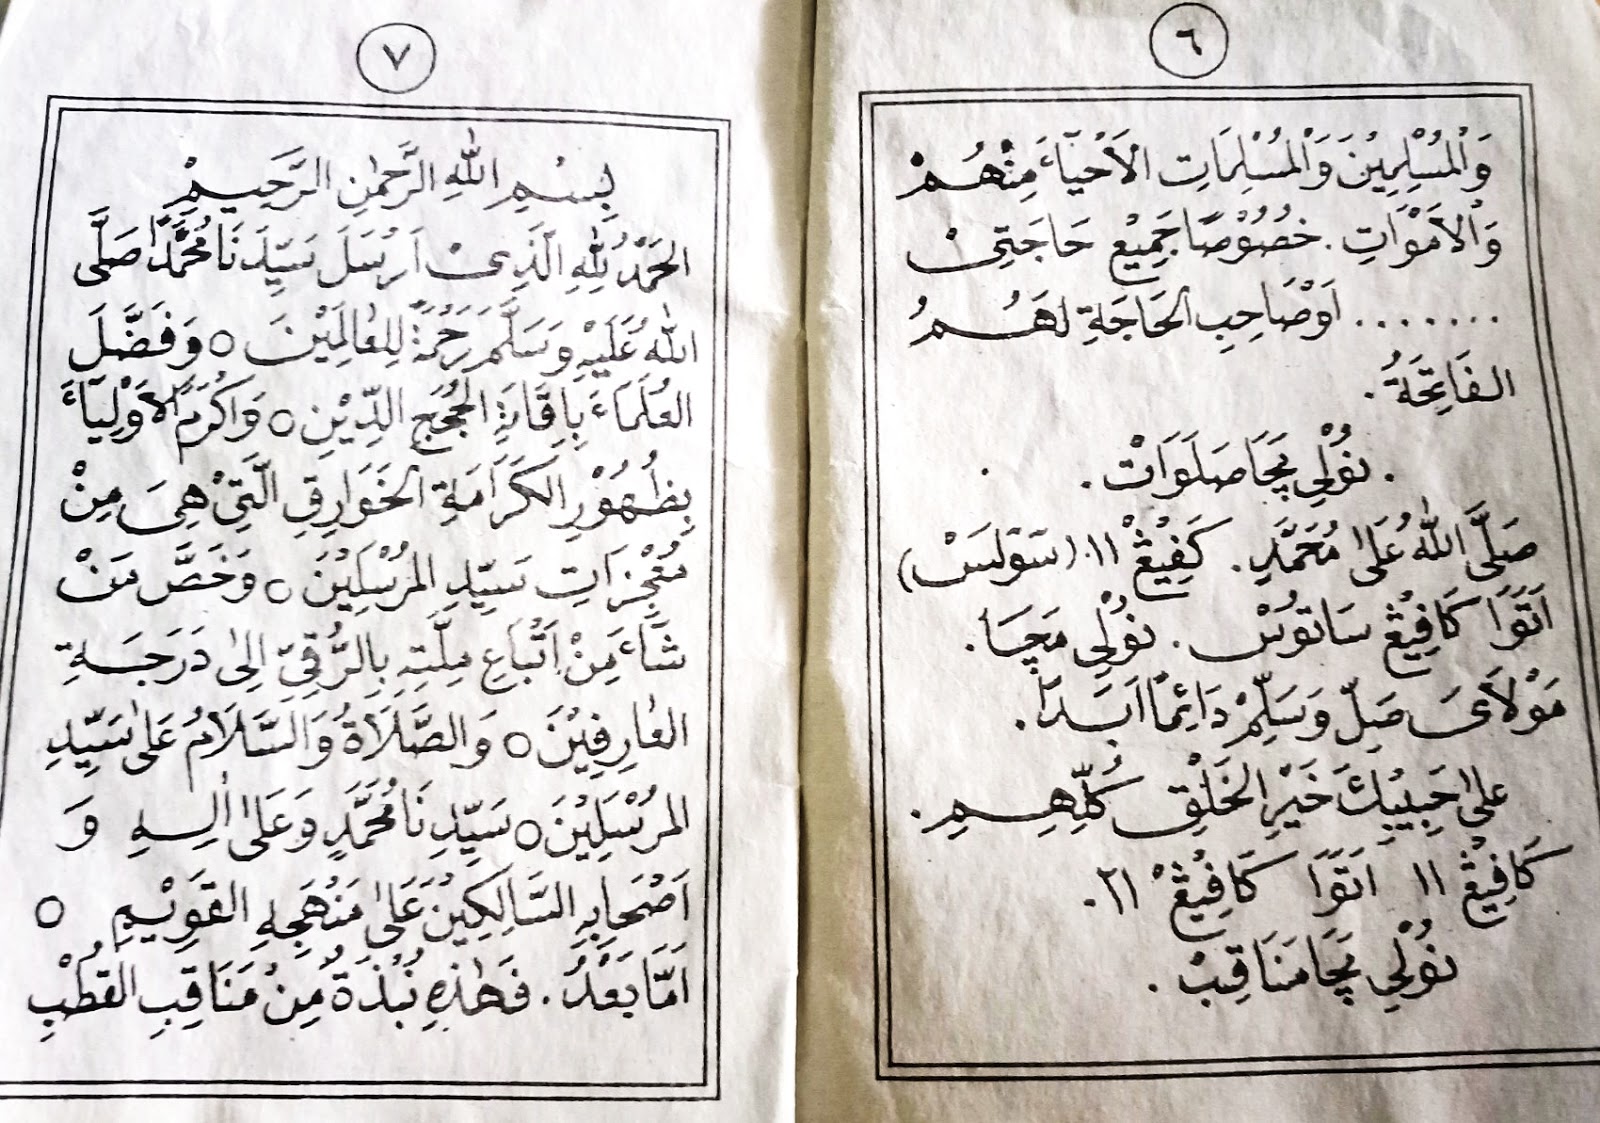 ٦
وَالْمُسْلِمِيْنَ وَالْمُسْلِمَاتِ الْاَحْيَآءِ مِنْهُمْ
وَالْاَمْوَاتِ . خُصُوْصًا جَمِيْعِ حَاجَتِيْ
....... اَوْصَاحِبِ الْحَاجَةِ لَهُمُ
الفَاتِحَةُ .
. نُوْلِي مَچَا صَلَوَاتْ .
صَلَّى اللهُ عَلٰى مُحَمَّدٍ . كَفِيْڠْ ١١ (سَوْلَسْ)
اَتَوَا كَافِيْڠْ سَاتوُسْ . نُوْلِي مَچَا .
مَوْلَايَ صَلِّ وَسَلِّمْ دَائِمًا اَبَدًا .
عَلٰى حَبِيْبِكَ خَيْرِ الْخَلْقِ كُلِّهِمِ .
كَافِيْڠْ ١١ اَتَوَا كَافِيْڠْ ٢١ .
نُوْلِي مَچَا مَنَاقِبْ .
٧
بِسْمِ اللهِ الرَّحْمٰنِ الرَّحِيمِ
الحَمْدُ لِلّٰهِ الَّذِيْ اَرْسَلَ سَيِّدَنَا مُحَمَّدًا صَلَّى
اللهُ عَلَيْهِ وَسَلَّمَ رَحْمَةً لِلْعٰالَمِيْنَ ○ وَفَضَّلَ
العُلَمَاءَ بِاِقَامَةِ الْحُجَجِ الدِّيْنِ ○ وَاَكْرَمَ الْاَوْلِيَآءَ
بِظُهُوْرِ الْكَرَامَةِ الْخَوَارِقِ الَّتِيْ هِيَ مِنْ
مُعْجِزَاتِ سَيِّدِ المُرْسَلِيْنَ ○ وَخَصَّ مَنْ
شَآءَ مِنْ اَتْبَاعِ مِلَّتِهِ بِالرُّقِيِّ اِلٰى دَرَجَةِ
العٰارِفِيْنَ ○ وَالصَّلَاةُ وَالسَّلَامُ عَلٰى سَيِّدِ
المُرْسَلِيْنَ ○ سَيِّدِنَا مُحَمَّدٍ وَعَلٰى اٰلِهِ وَ
اَصْحَابِهِ السَّالِكِيْنَ عَلٰى مَنْهَجِهِ القَوِيْمِ ○
اَمَّا بَعْدُ . فَهٰذِهِ نُبْذَةٌ مِنْ مَنَاقِبِ القُطْبِ